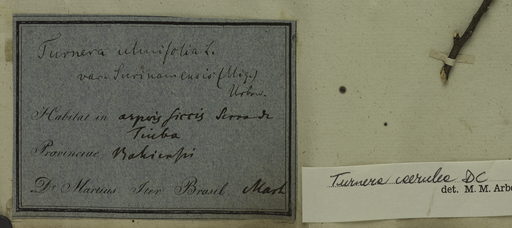 Turnera ulmifolia L.
var. Surinamensis (Miq.)
Urban.
Habitat in arvis siccis Serra de
Tiuba
Provinciae Bahiensis
Dr Martius Iter Brasil Mart
Turnera coerulea DC
det. M. M. Arbo